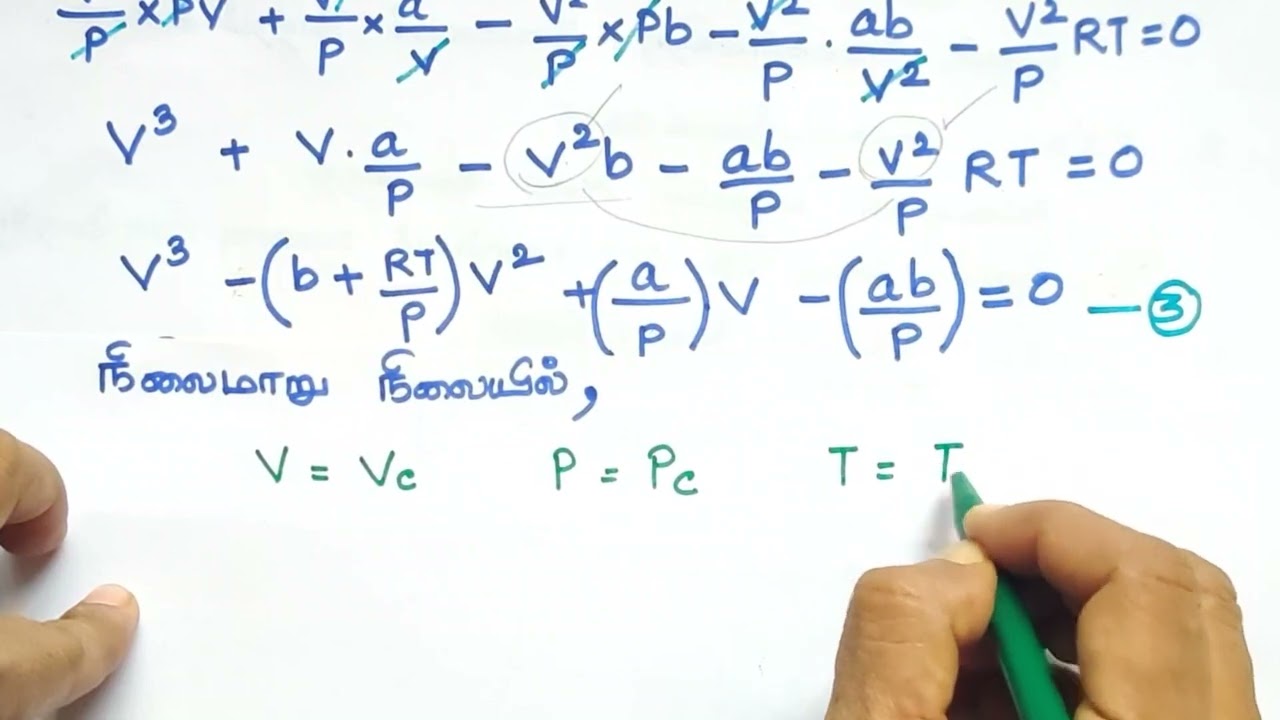 V²/P × PV + V²/P × a/V − V²/P × Pb − V²/P · ab/V² − V²/P RT = 0
V³ + V · a/P − V²b − ab/P − V²/P RT = 0
V³ − (b + RT/P) V² + (a/P) V − (ab/P) = 0 — ③
நிலைமாறு நிலையில்,
V = Vc P = Pc T = T